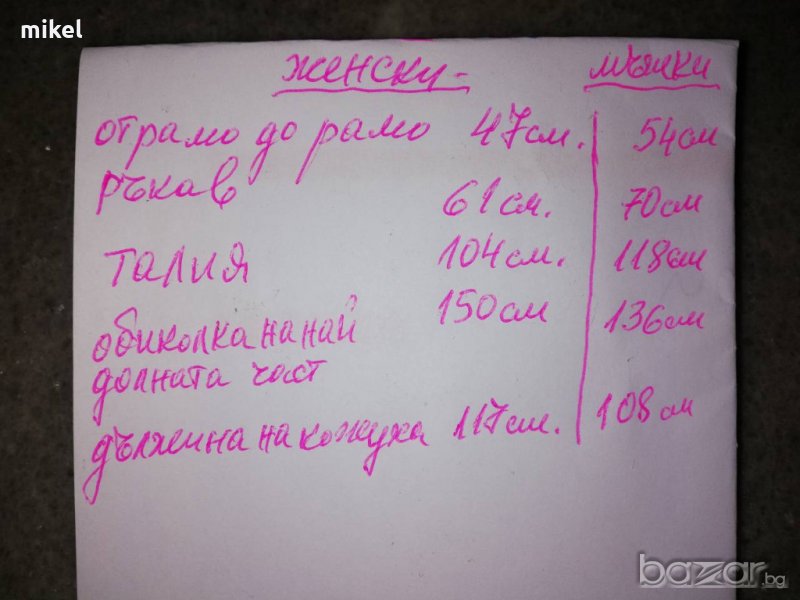 mikel
женски - мъшки
от рамо до рамо 47см. 54см
ръкав 61см. 70см
талия 104см. 118см
обиколка на най 150см 136см
долната част
дължина на кожуха 117см. 108см
bazar.bg